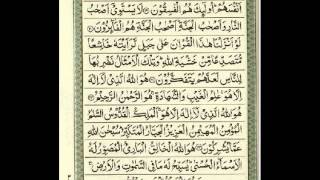 اَنْفُسَهُمْ اُولٰٓئِكَ هُمُ الْفٰسِقُوْنَ لَا يَسْتَوِيْٓ اَصْحٰبُ
النَّارِ وَاَصْحٰبُ الْجَنَّةِ اَصْحٰبُ الْجَنَّةِ هُمُ الْفَآئِزُوْنَ
لَوْ اَنْزَلْنَا هٰذَا الْقُرْاٰنَ عَلٰى جَبَلٍ لَّرَاَيْتَهٗ خَاشِعًا
مُّتَصَدِّعًا مِّنْ خَشْيَةِ اللّٰهِ وَتِلْكَ الْاَمْثَالُ نَضْرِبُهَا
لِلنَّاسِ لَعَلَّهُمْ يَتَفَكَّرُوْنَ هُوَ اللّٰهُ الَّذِيْ لَآ اِلٰهَ
اِلَّا هُوَ عٰلِمُ الْغَيْبِ وَالشَّهَادَةِ هُوَ الرَّحْمٰنُ الرَّحِيْمُ
هُوَ اللّٰهُ الَّذِيْ لَآ اِلٰهَ اِلَّا هُوَ اَلْمَلِكُ الْقُدُّوْسُ السَّلٰمُ
الْمُؤْمِنُ الْمُهَيْمِنُ الْعَزِيْزُ الْجَبَّارُ الْمُتَكَبِّرُ سُبْحٰنَ اللّٰهِ
عَمَّا يُشْرِكُوْنَ هُوَ اللّٰهُ الْخَالِقُ الْبَارِئُ الْمُصَوِّرُ لَهُ
الْاَسْمَآءُ الْحُسْنٰى يُسَبِّحُ لَهٗ مَا فِي السَّمٰوٰتِ وَالْاَرْضِ